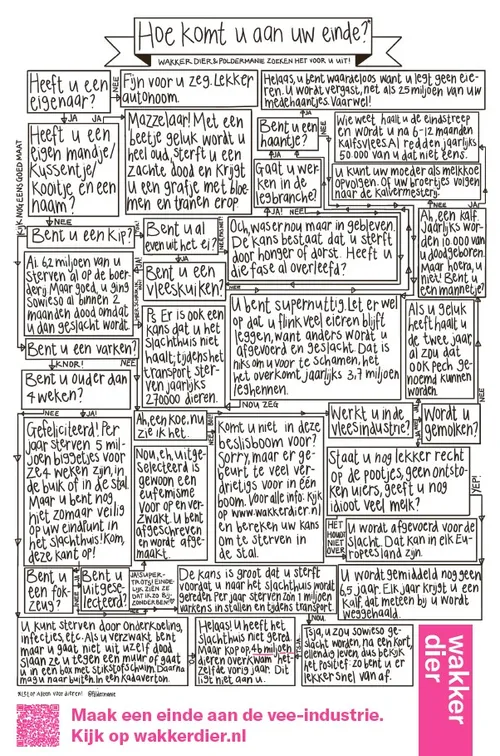 Hoe komt u aan uw einde?*
WAKKER DIER & POLDERMANIE ZOEKEN HET VOOR U UIT!
Heeft u een
eigenaar?
NEE
Fijn voor u zeg. Lekker
autonoom.
Helaas, u bent waardeloos want u legt geen eie-
ren. U wordt vergast, net als 25 miljoen van uw
medehaantjes. Vaarwel!
JA
JA
Heeft u een
eigen mandje/
kussentje/
kooitje en een
naam?
Mazzelaar! Met een
beetje geluk wordt u
heel oud, sterft u een
zachte dood en krijgt
u een grafje met bloe-
men en tranen erop
Bent u een
haantje?
NEE
JA
Gaat u wer-
ken in de
legbranche?
Wie weet haalt u de eindstreep
en wordt u na 6-12 maanden
kalfsvlees. Al redden jaarlijks
50.000 van u dat niet eens.
U kunt uw moeder als melkkoe
opvolgen. Of uw broertjes volgen
naar de kalvermesterij.
KIJK NOG EERS GOED MAAT
NEE
Bent u een kip?
Bent u al
even uit het ei?
JA
NEE!
Och, was er nou maar in gebleven.
De kans bestaat dat u sterft
door honger of dorst. Heeft u
die fase al overleefd?
Ah, een kalf.
Jaarlijks wor-
den 10.000 van
u doodgeboren.
Maar hoera, u
niet! Bent u
een mannetje?
Ai. 62 miljoen van u
sterven al op de boer-
derij. Maar goed, u ging
sowieso al binnen 2
maanden dood omdat
u dan geslacht wordt.
JA
Bent u een
vleeskuiken?
Ps. Er is ook een
kans dat u het
slachthuis niet
haalt; tijdens het
transport ster-
ven jaarlijks
270000 dieren.
U bent supernuttig. Let er wel
op dat u flink veel eieren blijft
leggen, want anders wordt u
afgevoerd en geslacht. Dat is
niks om u voor te schamen, het
het overkomt jaarlijks 3,7 miljoen
leghennen.
Als u geluk
heeft haalt u
de twee jaar,
al zou dat
ook pech ge-
noemd kunnen
worden.
Bent u een varken?
KNOR!
Bent u ouder dan
4 weken?
NEE
JA!
NOU ZEG
Gefeliciteerd! Per
jaar sterven 5 mil-
joen biggetjes voor
ze 4 weken zijn, in
de buik of in de stal.
Maar u bent nog
niet zomaar veilig
op uw eindpunt in
het slachthuis! Kom,
deze kant op!
Ah, een koe, nu
zie ik het.
Nou, eh, uitge-
selecteerd is
gewoon een
eufemisme
voor op en ver-
zwakt. U bent
afgeschreven
en wordt afge-
maakt.
Komt u niet in deze
beslisboom voor?
Sorry, maar er ge-
beurt te veel ver-
drietigs voor in één
boom. Voor alle info: kijk
op www.wakkerdier.nl
en bereken uw kans
om te sterven in
de stal.
Werkt u in de
vleesindustrie?
Wordt u
gemolken?
Staat u nog lekker recht
op de pootjes, geen ontsto-
ken uiers, geeft u nog
idioot veel melk?
YEP!
HET
HOUDT
NIET
OVER
U wordt afgevoerd voor de
slacht. Dat kan in elk Eu-
ropees land zijn.
Bent u
een fok-
zeug?
Bent u
uitge-
selecteerd?
JA! SUPER-
TROTS! EINDE-
LIJK ZIEN ZE
DAT IK ZO BIJ-
ZONDER BEN!
De kans is groot dat u sterft
voordat u naar het slachthuis wordt
gereden. Per jaar sterven zo'n 1 miljoen
varkens in stallen en tijdens transport.
U wordt gemiddeld nog geen
6,5 jaar. Elk jaar krijgt u een
kalf, dat meteen bij u wordt
weggehaald.
U kunt sterven door onderkoeling,
infecties, etc. Als u verzwakt bent
maar u gaat niet uit uzelf dood
slaan ze u tegen een muur of gaat
u in een box met stikstofschuim. Daarna
mag u naar buiten in een kadaverton.
Helaas! U heeft het
slachthuis niet gered.
Maar kop op, 46 miljoen
dieren overkwam het-
zelfde vorig jaar. Dit
ligt niet aan u.
NOU.
Tsja, u zou sowieso ge-
slacht worden, na een kort,
ellendig leven dus bekijk
het positief: zo bent u er
lekker snel van af.
wakker
dier
Maak een einde aan de vee-industrie.
Kijk op wakkerdier.nl